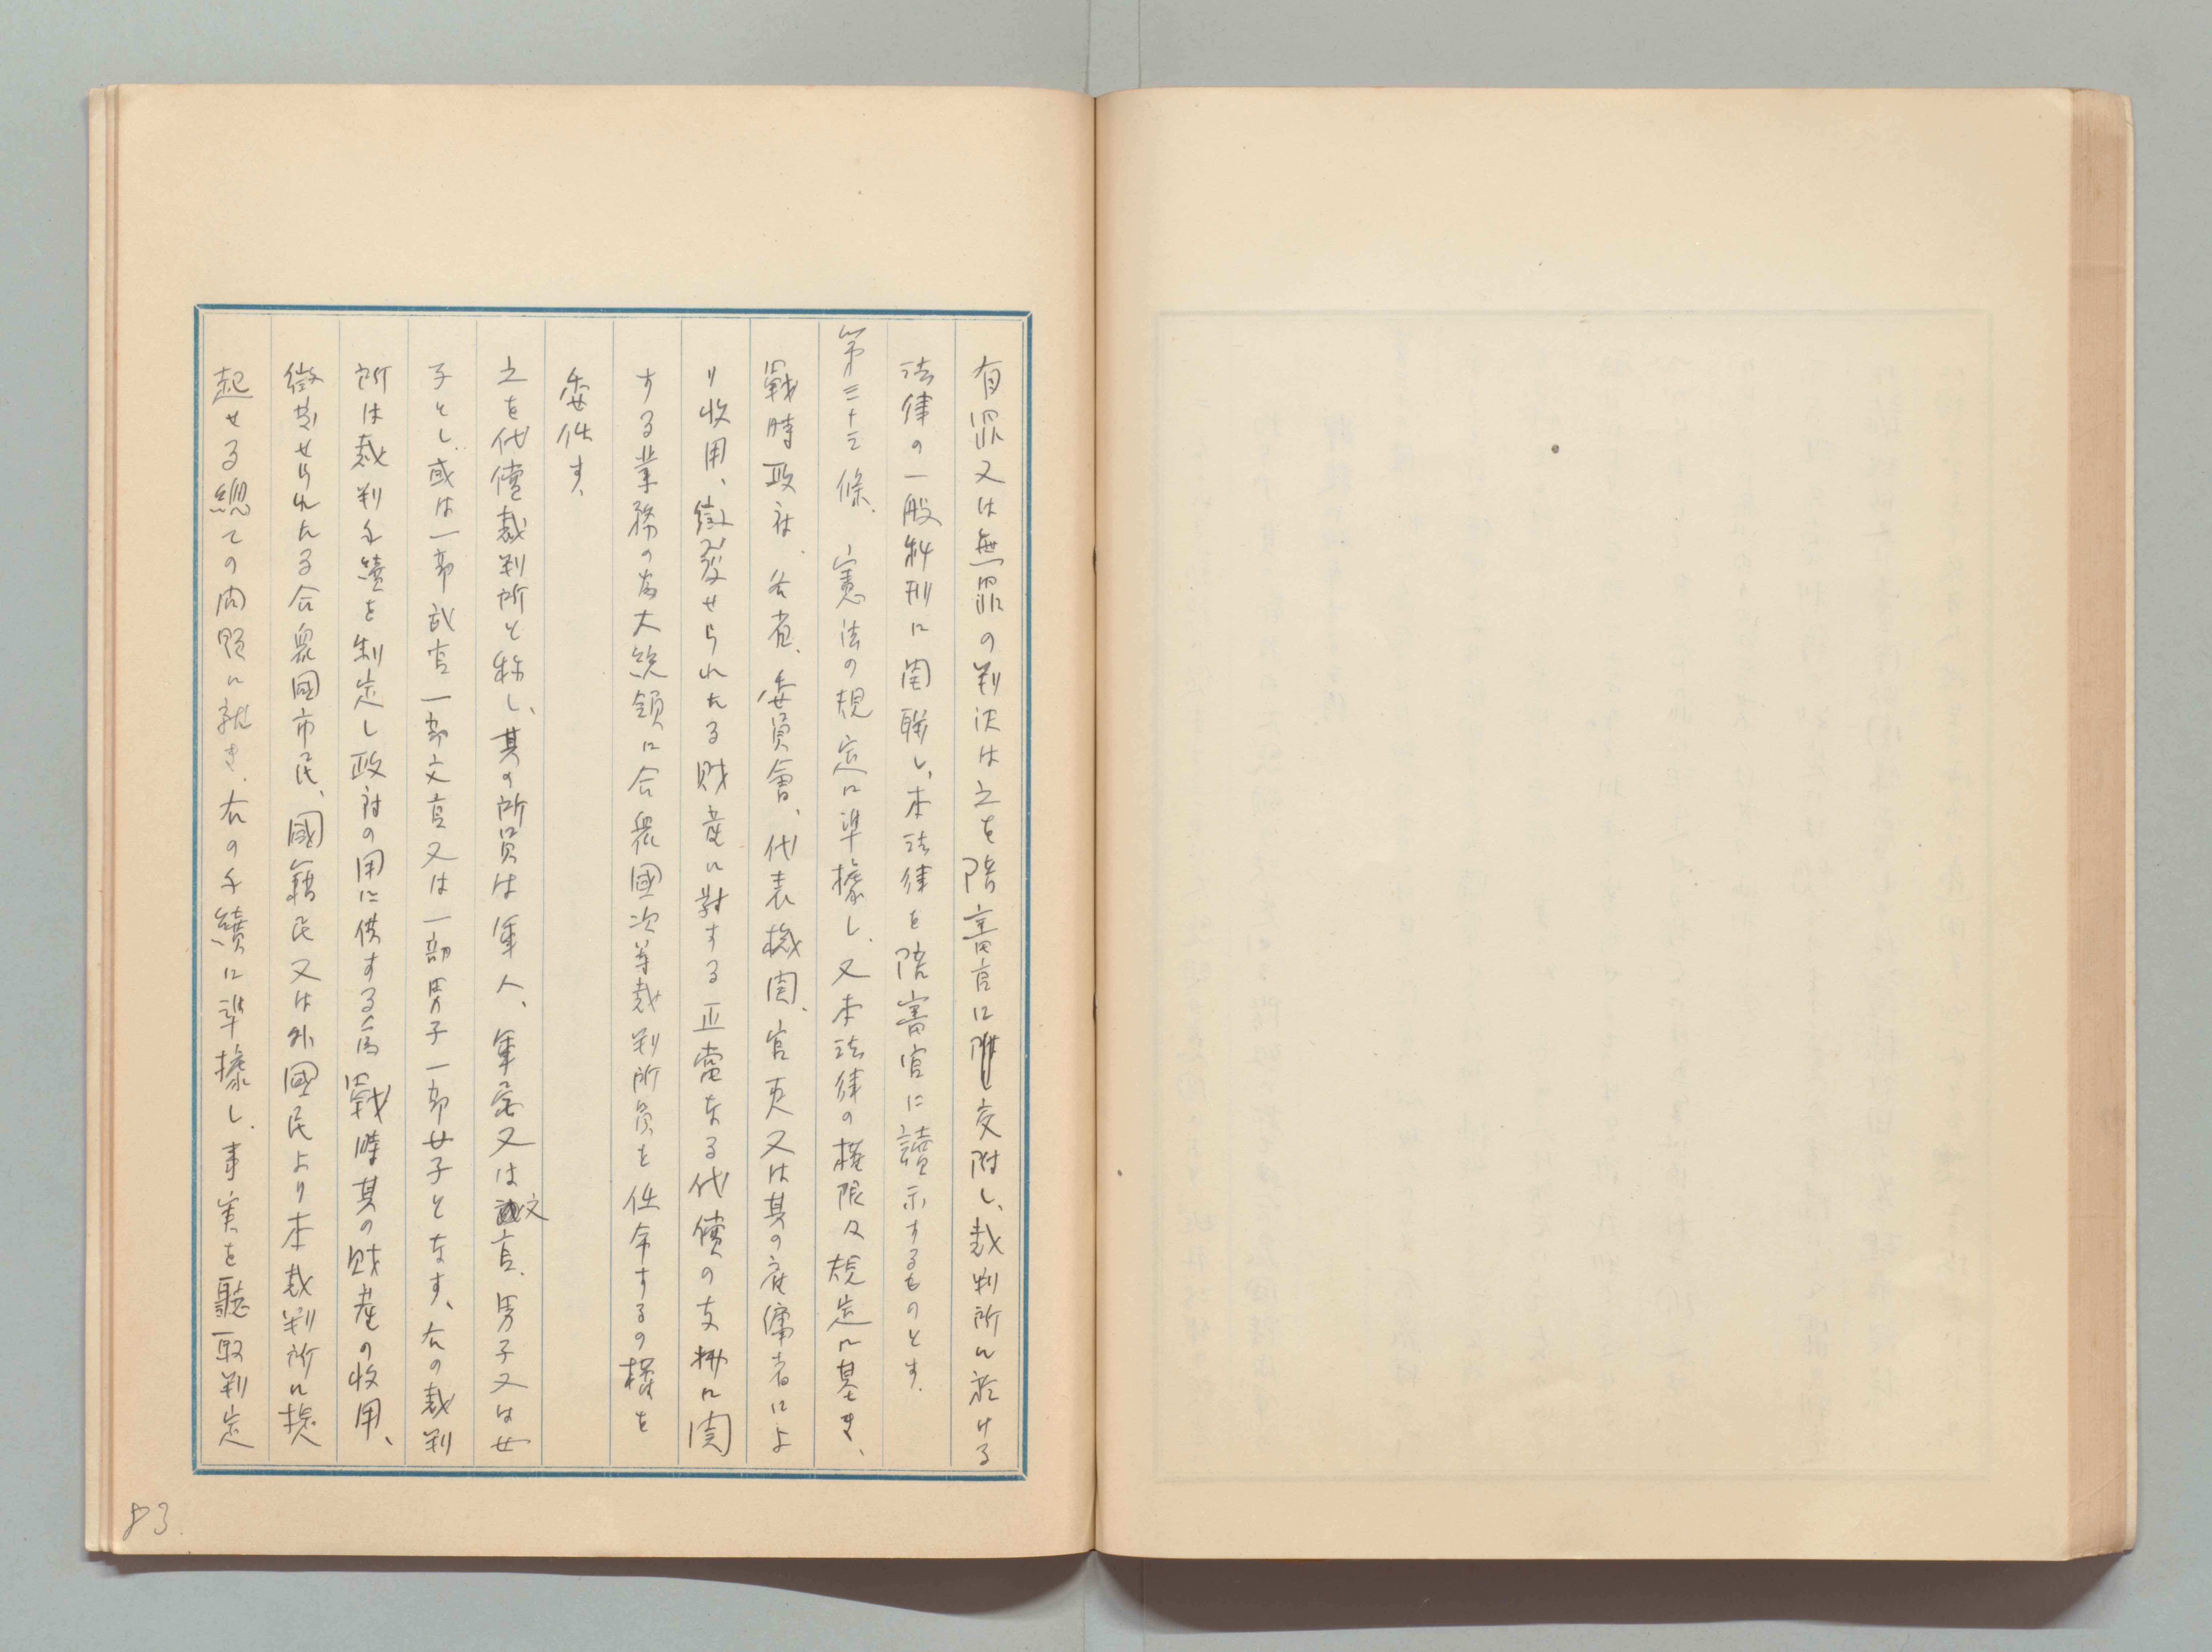 有罪又は無罪の判決は之を陪審官に交附し、裁判所に於ける
法律の一般科刑に関聯し、本法律を陪審官に讀示するものとす.
第三十三條. 憲法の規定に準據し、又本法律の権限及規定に基き、
戰時政府、各省、委員會、代表機関、官吏又は其の雇傭者によ
り收用、徴發せられたる財産に對する正當なる代償の支拂に関
する業務の為大統領に合衆國次等裁判所員を任命するの權を
委任す、
之を代償裁判所と称し、其の所員は軍人、軍属又は文官、男子又は女
子とし、或は一部武官一部文官又は一部男子一部女子となす、右の裁判
所は裁判手續を制定し政府の用に供する為戰時其の財産の收用、
徴発せられたる合衆國市民、國籍民又は外國民より本裁判所に提
起せる總ての問題に就き、右の手續に準據し、事実を聽取判定
83